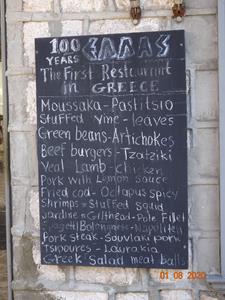 100 ΕΛΛΑΣ
YEARS
The First Restaurant
in GREECE
Moussaka-Pastitsio
Stuffed Vine-leaves
Green beans-Artichokes
Beef burgers-Tzatziki
Veal Lamb-chicken
Pork with Lemon Sauce
Fried cod-Octapus spicy
Shrimps-Stuffed Squid
Sardine-Gilthead-Pole Fillet
Spagetti Bolongnese-Napoliten
Pork steak-Souvlaki pork
Tsipoures-Laurakia
Greek Salad meat balls
01 08 2020